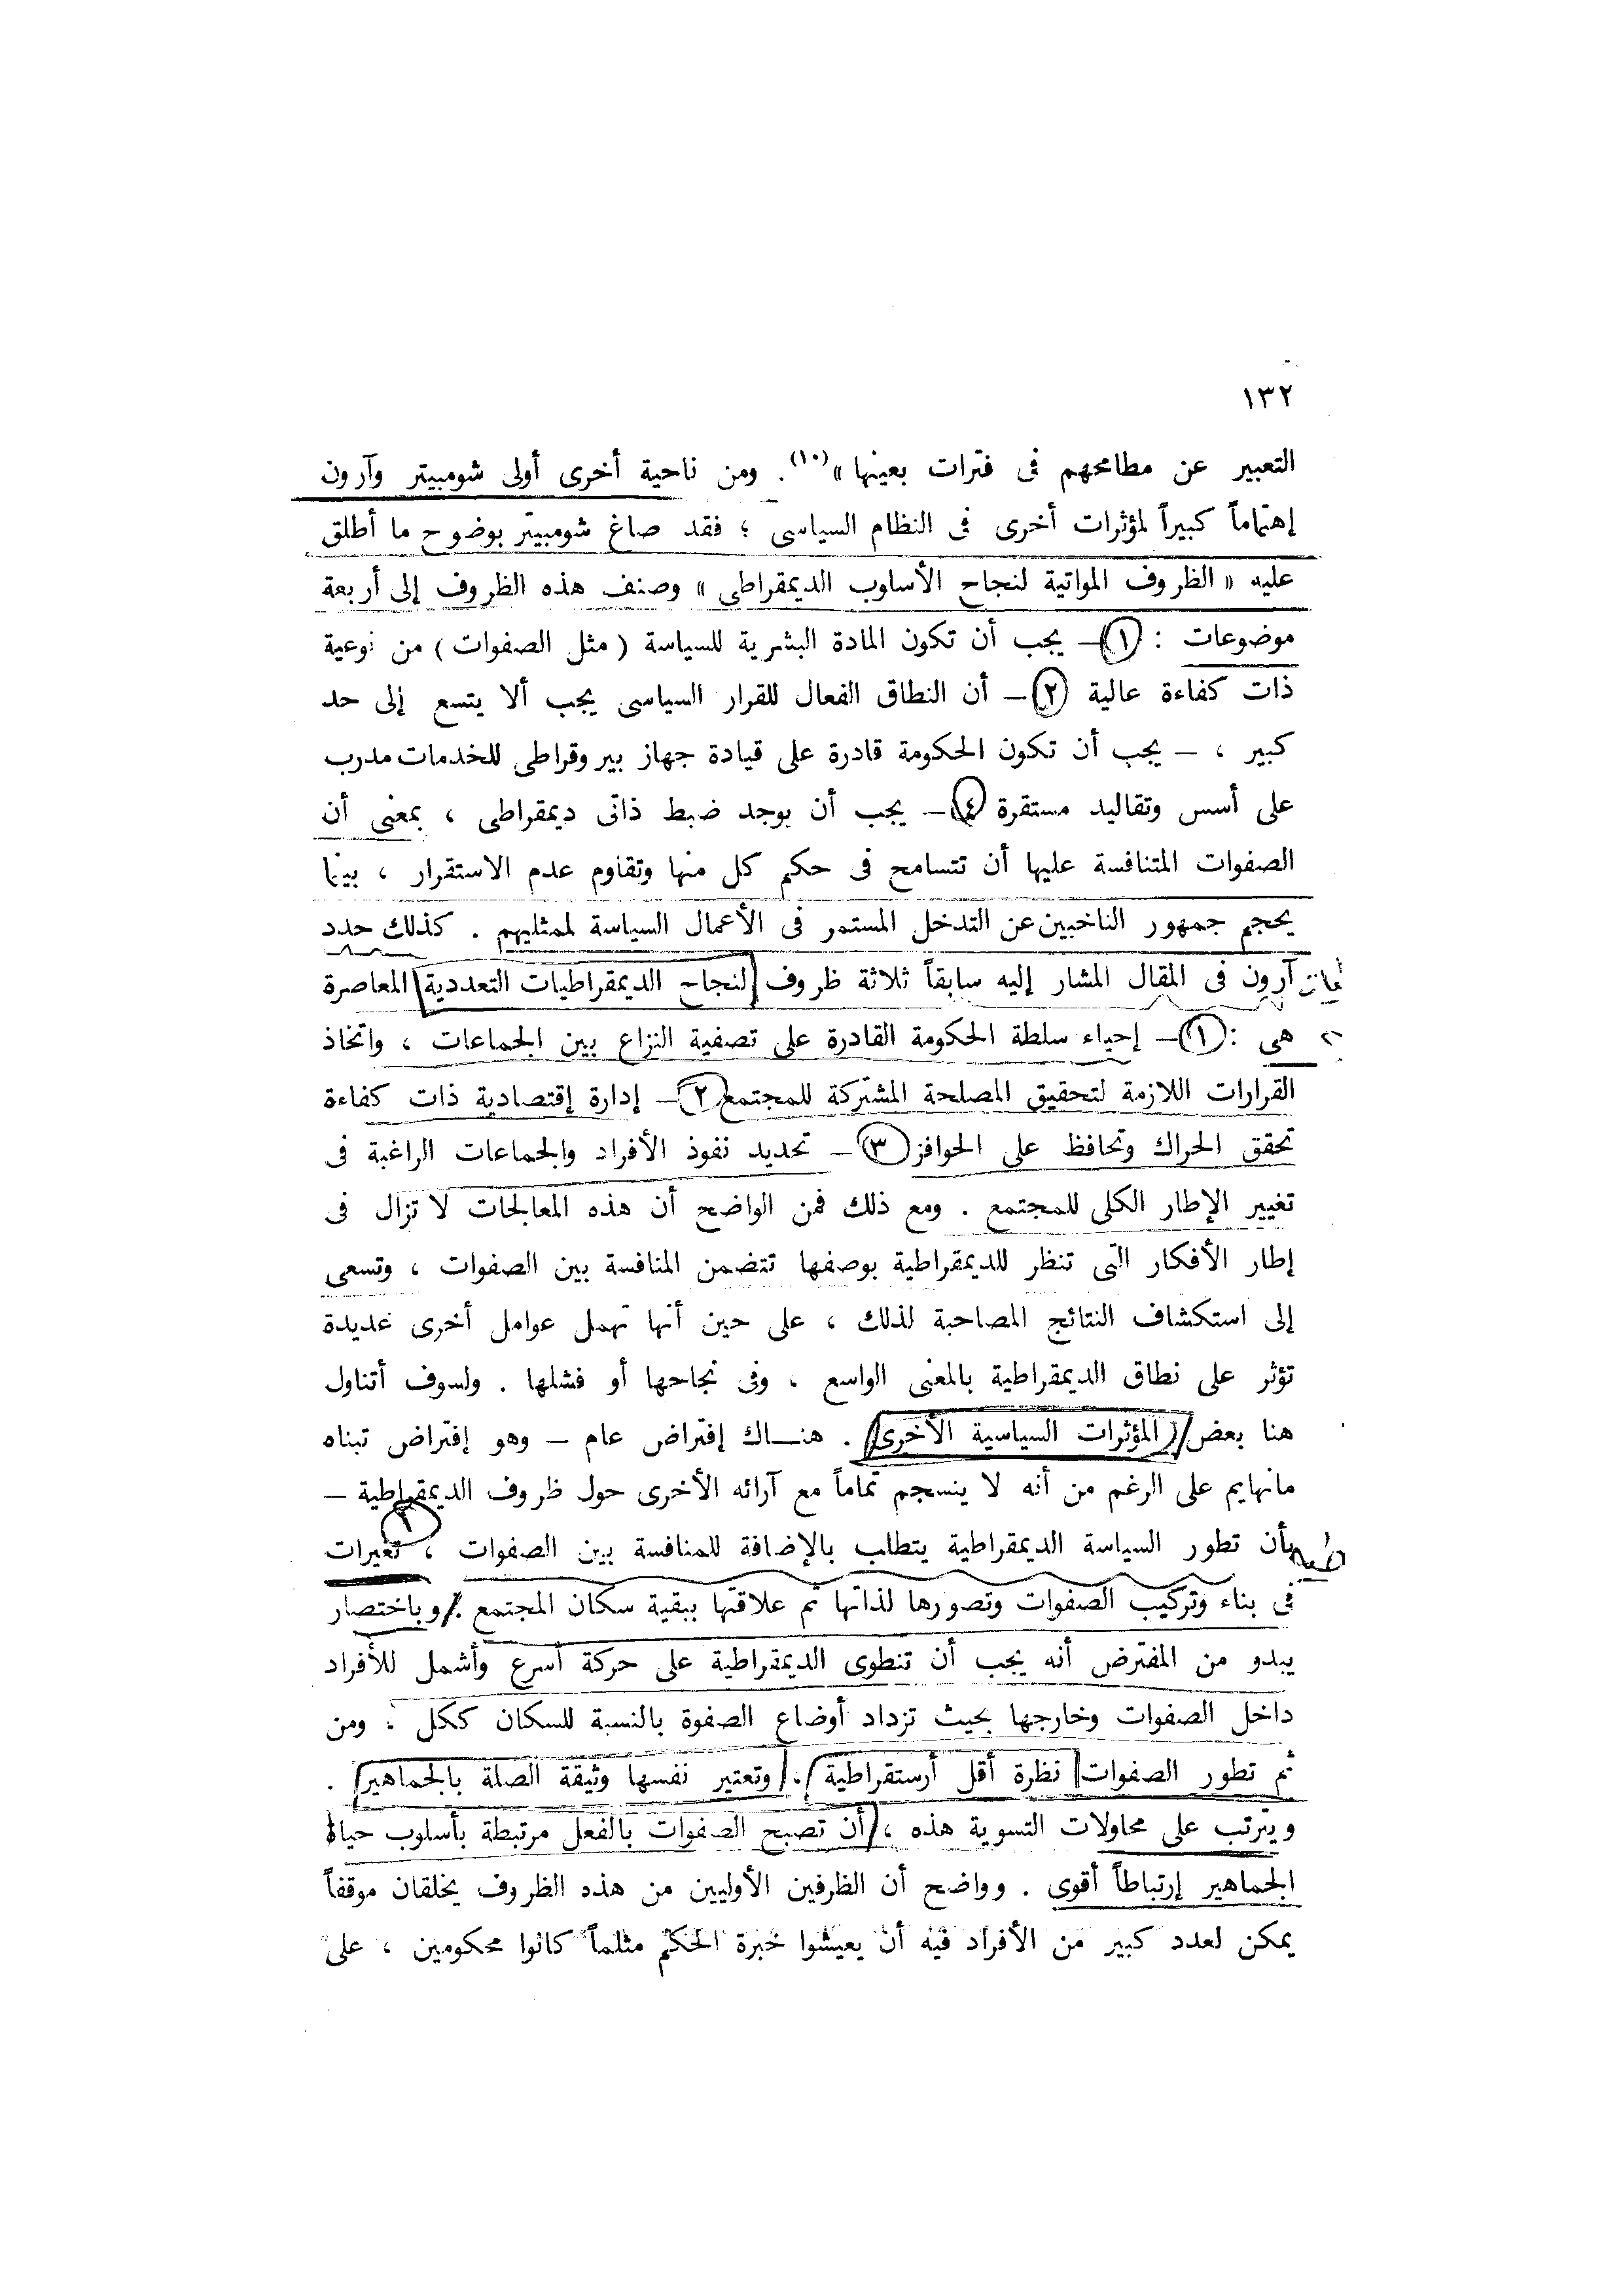 ١٣٢
التعبير عن مطامحهم فى فترات بعينها »(١٠). ومن ناحية أخرى أولى شومبيتر وآرون
إهتماماً كبيراً لمؤثرات أخرى فى النظام السياسى ؛ فقد صاغ شومبيتر بوضوح ما أطلق
عليه « الظروف المواتية لنجاح الأسلوب الديمقراطى » وصنف هذه الظروف إلى أربعة
موضوعات : ١ – يجب أن تكون المادة البشرية للسياسة ( مثل الصفوات ) من نوعية
ذات كفاءة عالية ٢ – أن النطاق الفعال للقرار السياسى يجب ألا يتسع إلى حد
كبير ، – يجب أن تكون الحكومة قادرة على قيادة جهاز بيروقراطى للخدمات مدرب
على أسس وتقاليد مستقرة ٤ – يجب أن يوجد ضبط ذاتى ديمقراطى ، بمعنى أن
الصفوات المتنافسة عليها أن تتسامح فى حكم كل منها وتقاوم عدم الاستقرار ، بينما
يحجم جمهور الناخبين عن التدخل المستمر فى الأعمال السياسة لممثليهم . كذلك حدد
آرون فى المقال المشار إليه سابقاً ثلاثة ظروف لنجاح الديمقراطيات التعددية المعاصرة
هى : ١ – إحياء سلطة الحكومة القادرة على تصفية النزاع بين الجماعات ، واتخاذ
القرارات اللازمة لتحقيق المصلحة المشتركة للمجتمع ٢ – إدارة إقتصادية ذات كفاءة
تحقق الحراك وتحافظ على الحوافز ٣ – تحديد نفوذ الأفراد والجماعات الراغبة فى
تغيير الإطار الكلى للمجتمع . ومع ذلك فمن الواضح أن هذه المعالجات لا تزال فى
إطار الأفكار التى تنظر للديمقراطية بوصفها تتضمن المنافسة بين الصفوات ، وتسعى
إلى استكشاف النتائج المصاحبة لذلك ، على حين أنها تهمل عوامل أخرى عديدة
تؤثر على نطاق الديمقراطية بالمعنى الواسع ، وفى نجاحها أو فشلها . ولسوف أتناول
هنا بعض المؤثرات السياسية الأخرى . هنـــاك إفتراض عام – وهو إفتراض تبناه
مانهايم على الرغم من أنه لا ينسجم تماماً مع آرائه الأخرى حول ظروف الديمقراطية –
بأن تطور السياسة الديمقراطية يتطلب بالإضافة للمنافسة بين الصفوات ، تغيرات
فى بناء وتركيب الصفوات وتصورها لذاتها ثم علاقتها ببقية سكان المجتمع . وباختصار
يبدو من المفترض أنه يجب أن تنطوى الديمقراطية على حركة أسرع وأشمل للأفراد
داخل الصفوات وخارجها بحيث تزداد أوضاع الصفوة بالنسبة للسكان ككل ، ومن
ثم تطور الصفوات نظرة أقل أرستقراطية ، وتعتبر نفسها وثيقة الصلة بالجماهير .
ويترتب على محاولات التسوية هذه ، أن تصبح الصفوات بالفعل مرتبطة بأسلوب حياة
الجماهير إرتباطاً أقوى . وواضح أن الظرفين الأوليين من هذه الظروف يخلقان موقفاً
يمكن لعدد كبير من الأفراد فيه أن يعيشوا خبرة الحكم مثلماً كانوا محكومين ، على